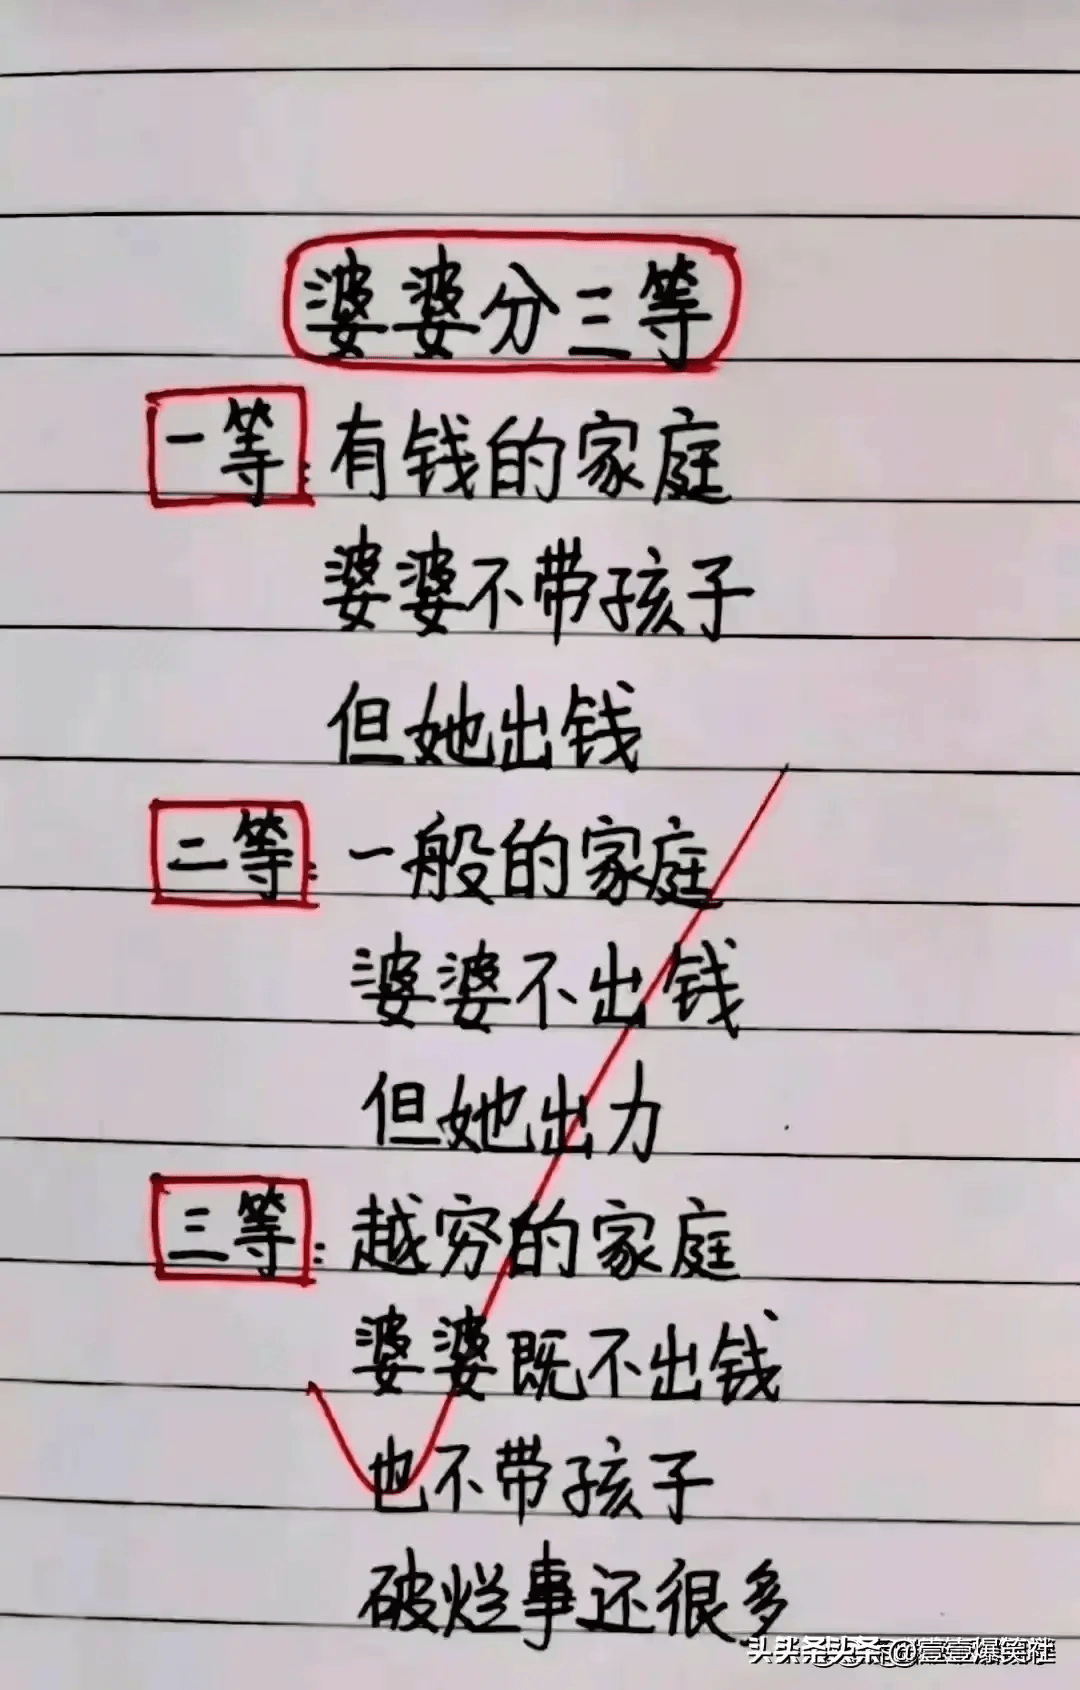 婆婆分三等
一等:有钱的家庭
婆婆不带孩子
但她出钱
二等:一般的家庭
婆婆不出钱
但她出力
三等:越穷的家庭
婆婆既不出钱
也不带孩子
破烂事还很多